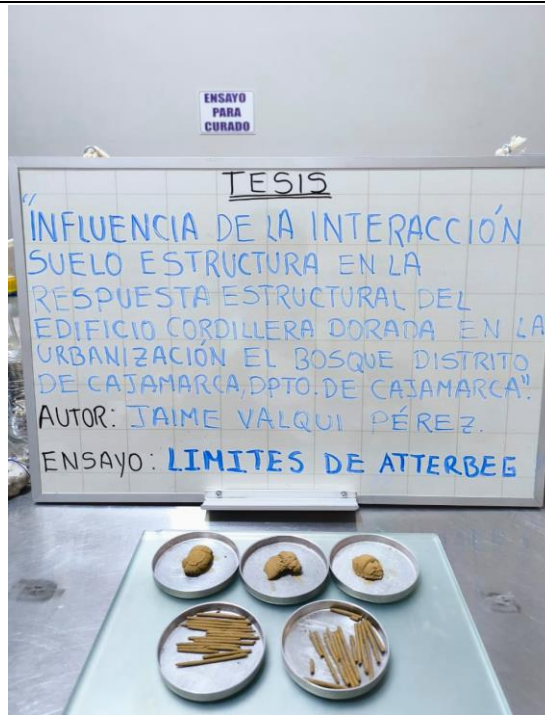 ENSAYO
PARA
CURADO
TESIS
"INFLUENCIA DE LA INTERACCIÓN
SUELO ESTRUCTURA EN LA
RESPUESTA ESTRUCTURAL DEL
EDIFICIO CORDILLERA DORADA EN LA
URBANIZACIÓN EL BOSQUE DISTRITO
DE CAJAMARCA, DPTO. DE CAJAMARCA".
AUTOR: JAIME VALQUI PÉREZ.
ENSAYO: LIMITES DE ATTERBEG